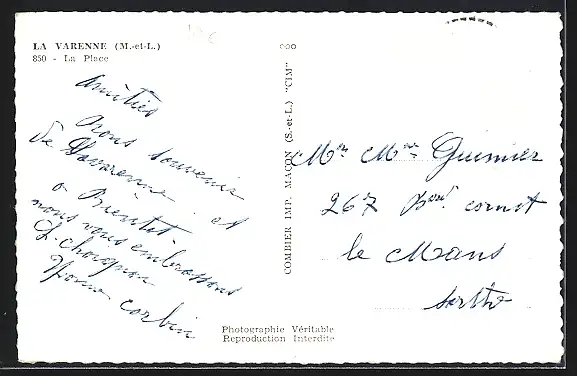 LA VARENNE (M.-et-L.)
850 - La Place
Amitiés
Bons souvenir
de Lavarenne et
a Bientôt
nous vous embrassons
Yvonne corbin
COMBIER IMP. MACON (S.-et-L.) "CIM"
Mr Mme Guimier
267 cornet
le Mans
sarthe
Photographie Véritable
Reproduction Interdite